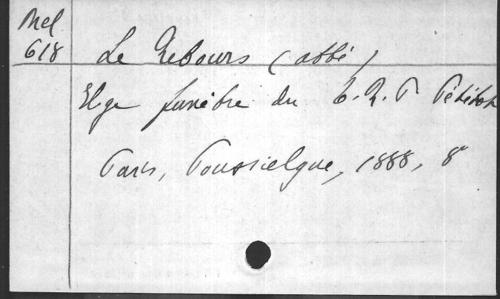 Mel
618
Le Rebours (abbé)
Eloge funèbre du T. R. P. Pététot
Paris, Poussielgue, 1888, 8°